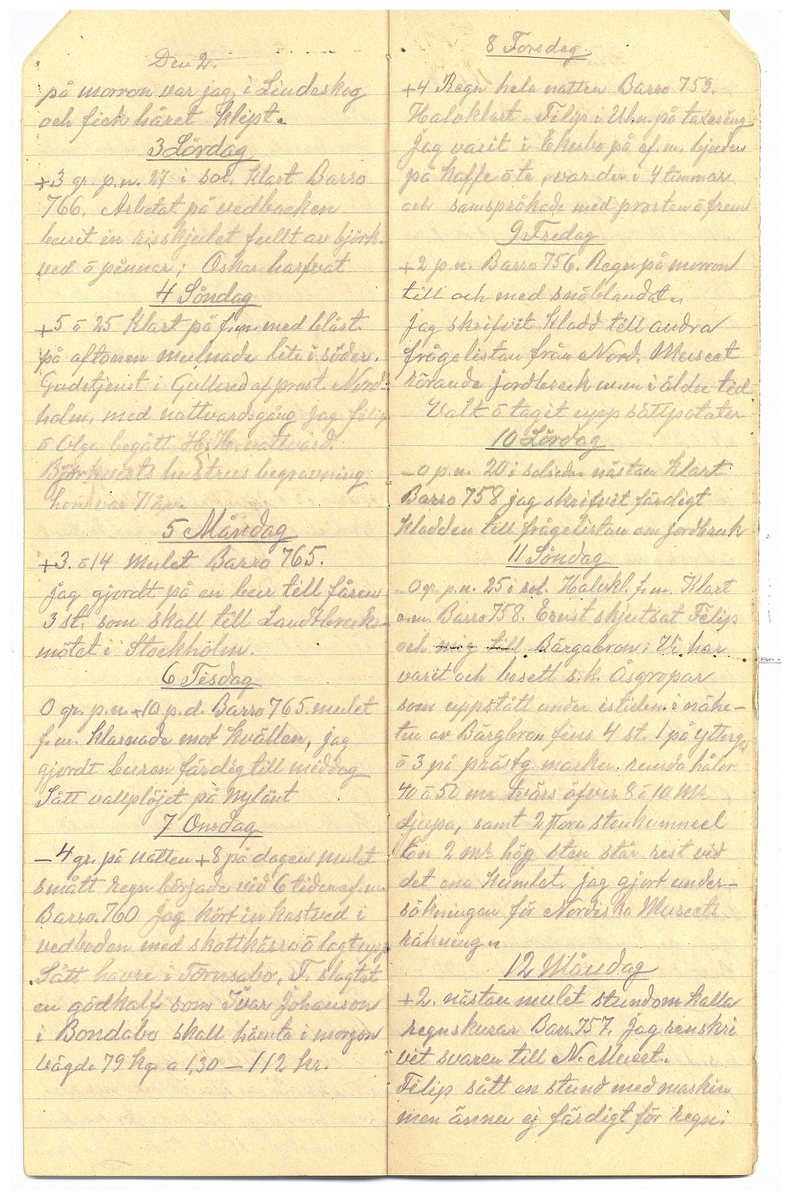 Den 2.
på morron var jag i Lindeskog
och fick håret klipt.
3 Lördag
+3 gr. p.n. 27 i sol. Klart Barro
766. Arbetat på vedbacken
burit in risskjulet fullt av björk-
ved ö pännar; Oskar harfvat
4 Söndag
+5 ö 25 Klart på f.m. med blåst.
på aftonen mulnade lite i söder.
Gudstjenst i Gullered af prost. Nord-
holm, med nattvardsgång jag Felip
ö Olga begått H. H. nattvard.
hustrus begravning
hon var 71 år.
5 Måndag
+3. ö 14 Mulet Barro 765.
jag gjordt på en bur till fåren
3 st. som skall till Landtbruks
mötet i Stockholm.
6 Tisdag
0 gr. p.n. +10 p.d. Barro 765. mulet
f.m. klarnade mot kvällen, jag
gjordt buren färdig till middag
Sått vallplöjet på Nylänt
7 Onsdag
-4 gr. på natten +8 på dagen mulet
smått regn började vid 6 tiden ef.m.
Barro. 760 Jag kört in kastved i
vedboden med skottkärra ö lagt upp
Sått havre i Törnsabo, F. slagtat
en gödkalf som Ivar Johanson
i Bondabo skall hämta i morgon
vägde 79 kg. a 1,30 — 112 kr.
8 Torsdag
+4 Regn hela natten Barro 759.
Halvklart. Felip i Uh.n. på taxering
Jag varit i Ekerbo på ef.m. bjuden
på kaffe ö te, var der i 4 timmar
och samspråkade med prosten ö frun
9 Fredag
+2 p.n. Barro 756. Regn på morron
till och med snöblandat.
jag skrifvit kladd till andra
frågelistan från Nord. Museet
rörande jordbruk m.m i äldre tid
Valt ö tagit upp sättpotater
10 Lördag
-0 p.n. 20 i solsidan nästan klart
Barro 758 jag skrifvit färdigt
kladden till frågelistan om jordbruk
11 Söndag
-0 gr. p.n. 25 i sol. Halvkl. f.m. Klart
e.m. Barro 758. Ernst skjutsat Felip
och mig till Bärgabron; Vi har
varit och besett s.k. Åsgropar
som uppstått under istiden. i närhe-
ten av Bärgbron fins 4 st. 1 på Ytterg.
ö 3 på prästg. marker. runda hålor
40 ö 50 mr tvärs öfver 8 ö 10 Mr
djupa, samt 2 stora stenkummel
en 2 mr hög sten står rest vid
det ena Kumlet. jag gjort under-
sökningen för Nordiska Museets
räkning.
12 Måndag
+2. nästan mulet stundom kalla
regnskurar Barr. 757. Jag renskri
vit svaren till N. Museet.
Felip sått en stund med maskin
men ännu ej färdigt för regn.